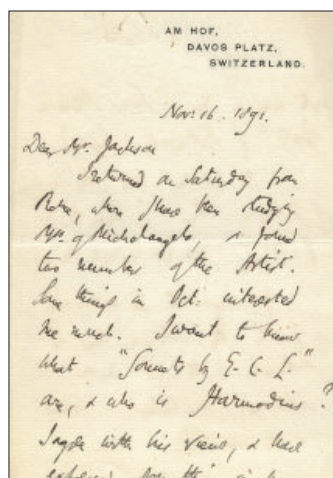 AM HOF,
DAVOS PLATZ,
SWITZERLAND.
Nov: 16. 1891.
Dear Mr. Jackson
I returned on Saturday from
Rome, where I have been studying
Mss. of Michelangelo, & found
two numbers of the Artist.
Some things in Oct: interested
me much. I want to know
what "Sonnets by E. C. L."
are, & who is Harmodius?
I agree with his views, & had